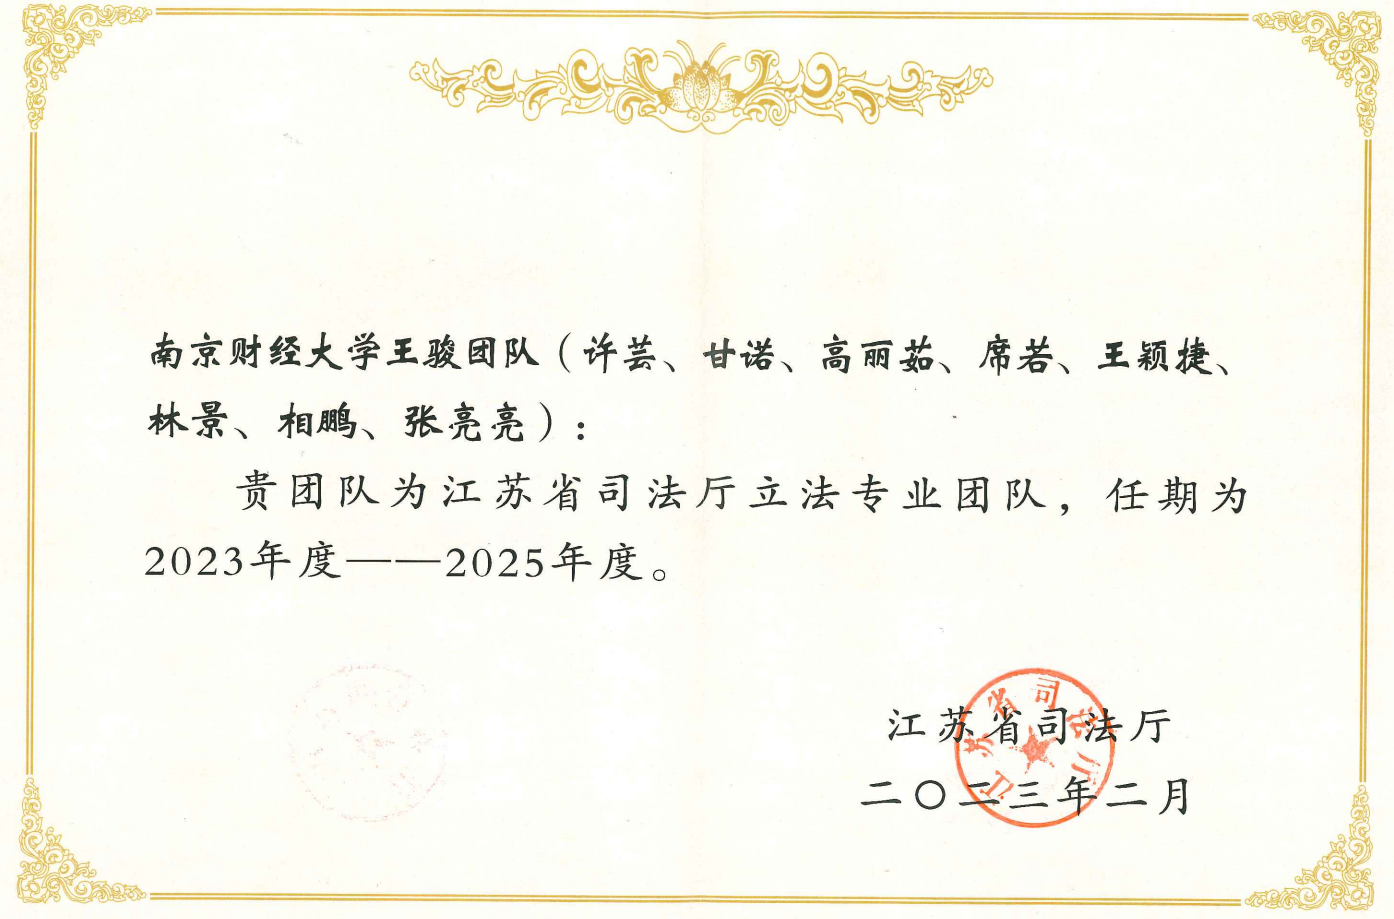 南京财经大学王骏团队（许芸、甘诺、高丽茹、席若、王颖捷、
林景、相鹏、张亮亮）：
贵团队为江苏省司法厅立法专业团队，任期为
2023年度——2025年度。
江苏省司法厅
二〇二三年二月
江苏省司法厅